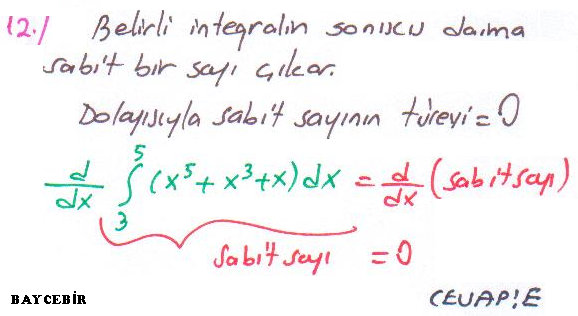 12./ Belirli integralin sonucu daima
sabit bir sayı çıkar.
Dolayısıyla sabit sayının türevi = 0
d/dx ∫₃⁵ (x⁵ + x³ + x) dx = d/dx (sabit sayı)
sabit sayı = 0
BAYCEBİR CEVAP: E